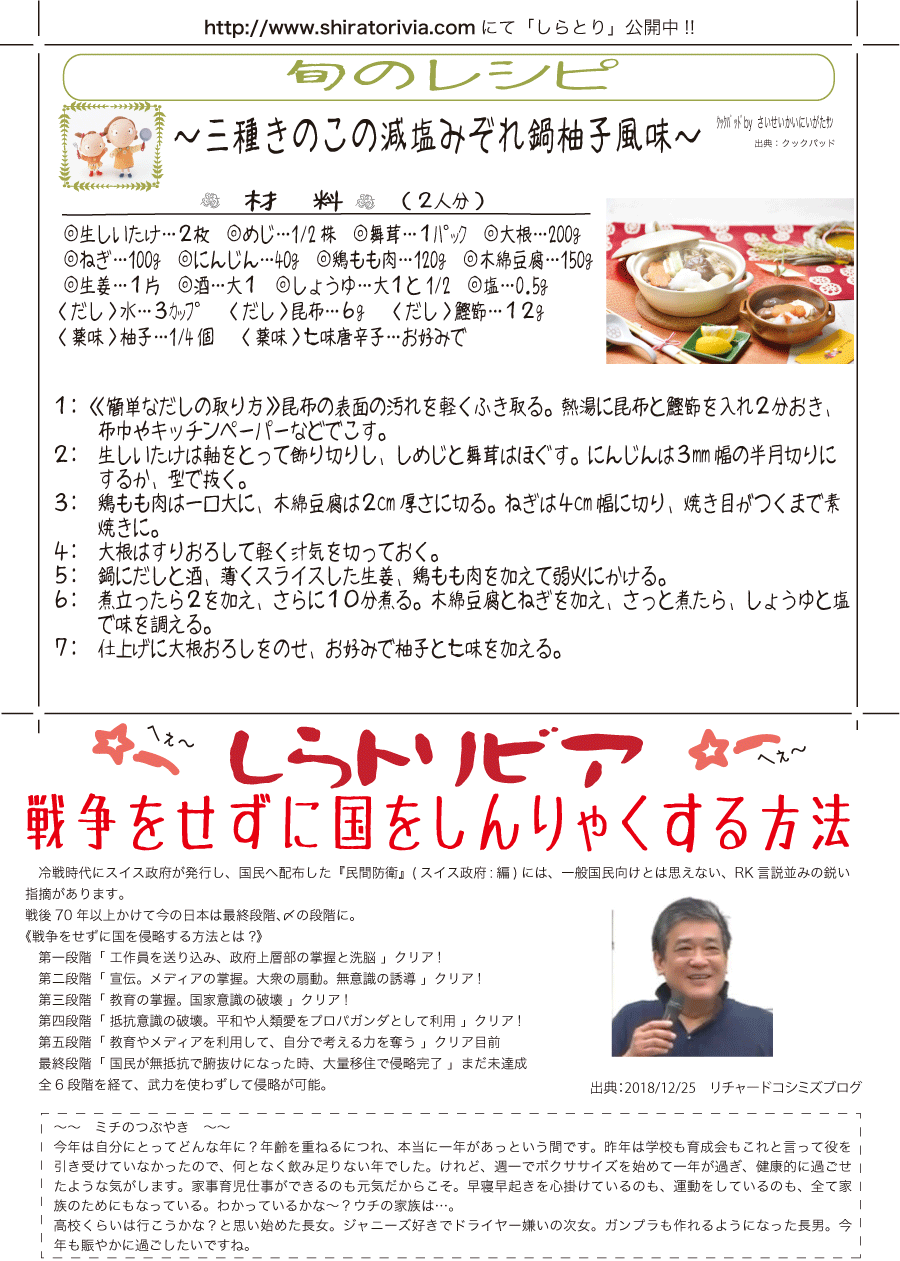 http://www.shiratorivia.com にて「しらとり」公開中 !!
旬のレシピ
～三種きのこの減塩みぞれ鍋柚子風味～
ｸｯｸﾊﾟｯﾄﾞ by さいせいかいにいがたｻﾝ
出典：クックパッド
材　料　（2人分）
◎生しいたけ…2枚　◎めじ…1/2株　◎舞茸…1ﾊﾟｯｸ　◎大根…200g
◎ねぎ…100g　◎にんじん…40g　◎鶏もも肉…120g　◎木綿豆腐…150g
◎生姜…1片　◎酒…大1　◎しょうゆ…大1と1/2　◎塩…0.5g
〈だし〉水…3ｶｯﾌﾟ　〈だし〉昆布…6g　〈だし〉鰹節…12g
〈薬味〉柚子…1/4個　〈薬味〉七味唐辛子…お好みで
1：《簡単なだしの取り方》昆布の表面の汚れを軽くふき取る。熱湯に昆布と鰹節を入れ2分おき、
布巾やキッチンペーパーなどでこす。
2：　生しいたけは軸をとって飾り切りし、しめじと舞茸はほぐす。にんじんは3mm幅の半月切りに
するか、型で抜く。
3：　鶏もも肉は一口大に、木綿豆腐は2cm厚さに切る。ねぎは4cm幅に切り、焼き目がつくまで素
焼きに。
4：　大根はすりおろして軽く汁気を切っておく。
5：　鍋にだしと酒、薄くスライスした生姜、鶏もも肉を加えて弱火にかける。
6：　煮立ったら2を加え、さらに10分煮る。木綿豆腐とねぎを加え、さっと煮たら、しょうゆと塩
で味を調える。
7：　仕上げに大根おろしをのせ、お好みで柚子と七味を加える。
へぇ～
しらトリビア
へぇ～
戦争をせずに国をしんりゃくする方法
冷戦時代にスイス政府が発行し、国民へ配布した『民間防衛』( スイス政府 : 編 ) には、一般国民向けとは思えない、RK 言説並みの鋭い
指摘があります。
戦後 70 年以上かけて今の日本は最終段階､〆の段階に。
《戦争をせずに国を侵略する方法とは？》
第一段階「 工作員を送り込み、政府上層部の掌握と洗脳 」クリア！
第二段階「 宣伝。メディアの掌握。大衆の扇動。無意識の誘導 」クリア！
第三段階「 教育の掌握。国家意識の破壊 」クリア！
第四段階「 抵抗意識の破壊。平和や人類愛をプロパガンダとして利用 」クリア！
第五段階「 教育やメディアを利用して、自分で考える力を奪う 」クリア目前
最終段階「 国民が無抵抗で腑抜けになった時、大量移住で侵略完了 」まだ未達成
全 6 段階を経て、武力を使わずして侵略が可能。
出典：2018/12/25　リチャードコシミズブログ
～～　ミチのつぶやき　～～
今年は自分にとってどんな年に？年齢を重ねるにつれ、本当に一年があっという間です。昨年は学校も育成会もこれと言って役を
引き受けていなかったので、何となく飲み足りない年でした。けれど、週一でボクササイズを始めて一年が過ぎ、健康的に過ごせ
たような気がします。家事育児仕事ができるのも元気だからこそ。早寝早起きを心掛けているのも、運動をしているのも、全て家
族のためにもなっている。わかっているかな～？ウチの家族は…。
高校くらいは行こうかな？と思い始めた長女。ジャニーズ好きでドライヤー嫌いの次女。ガンプラも作れるようになった長男。今
年も賑やかに過ごしたいですね。